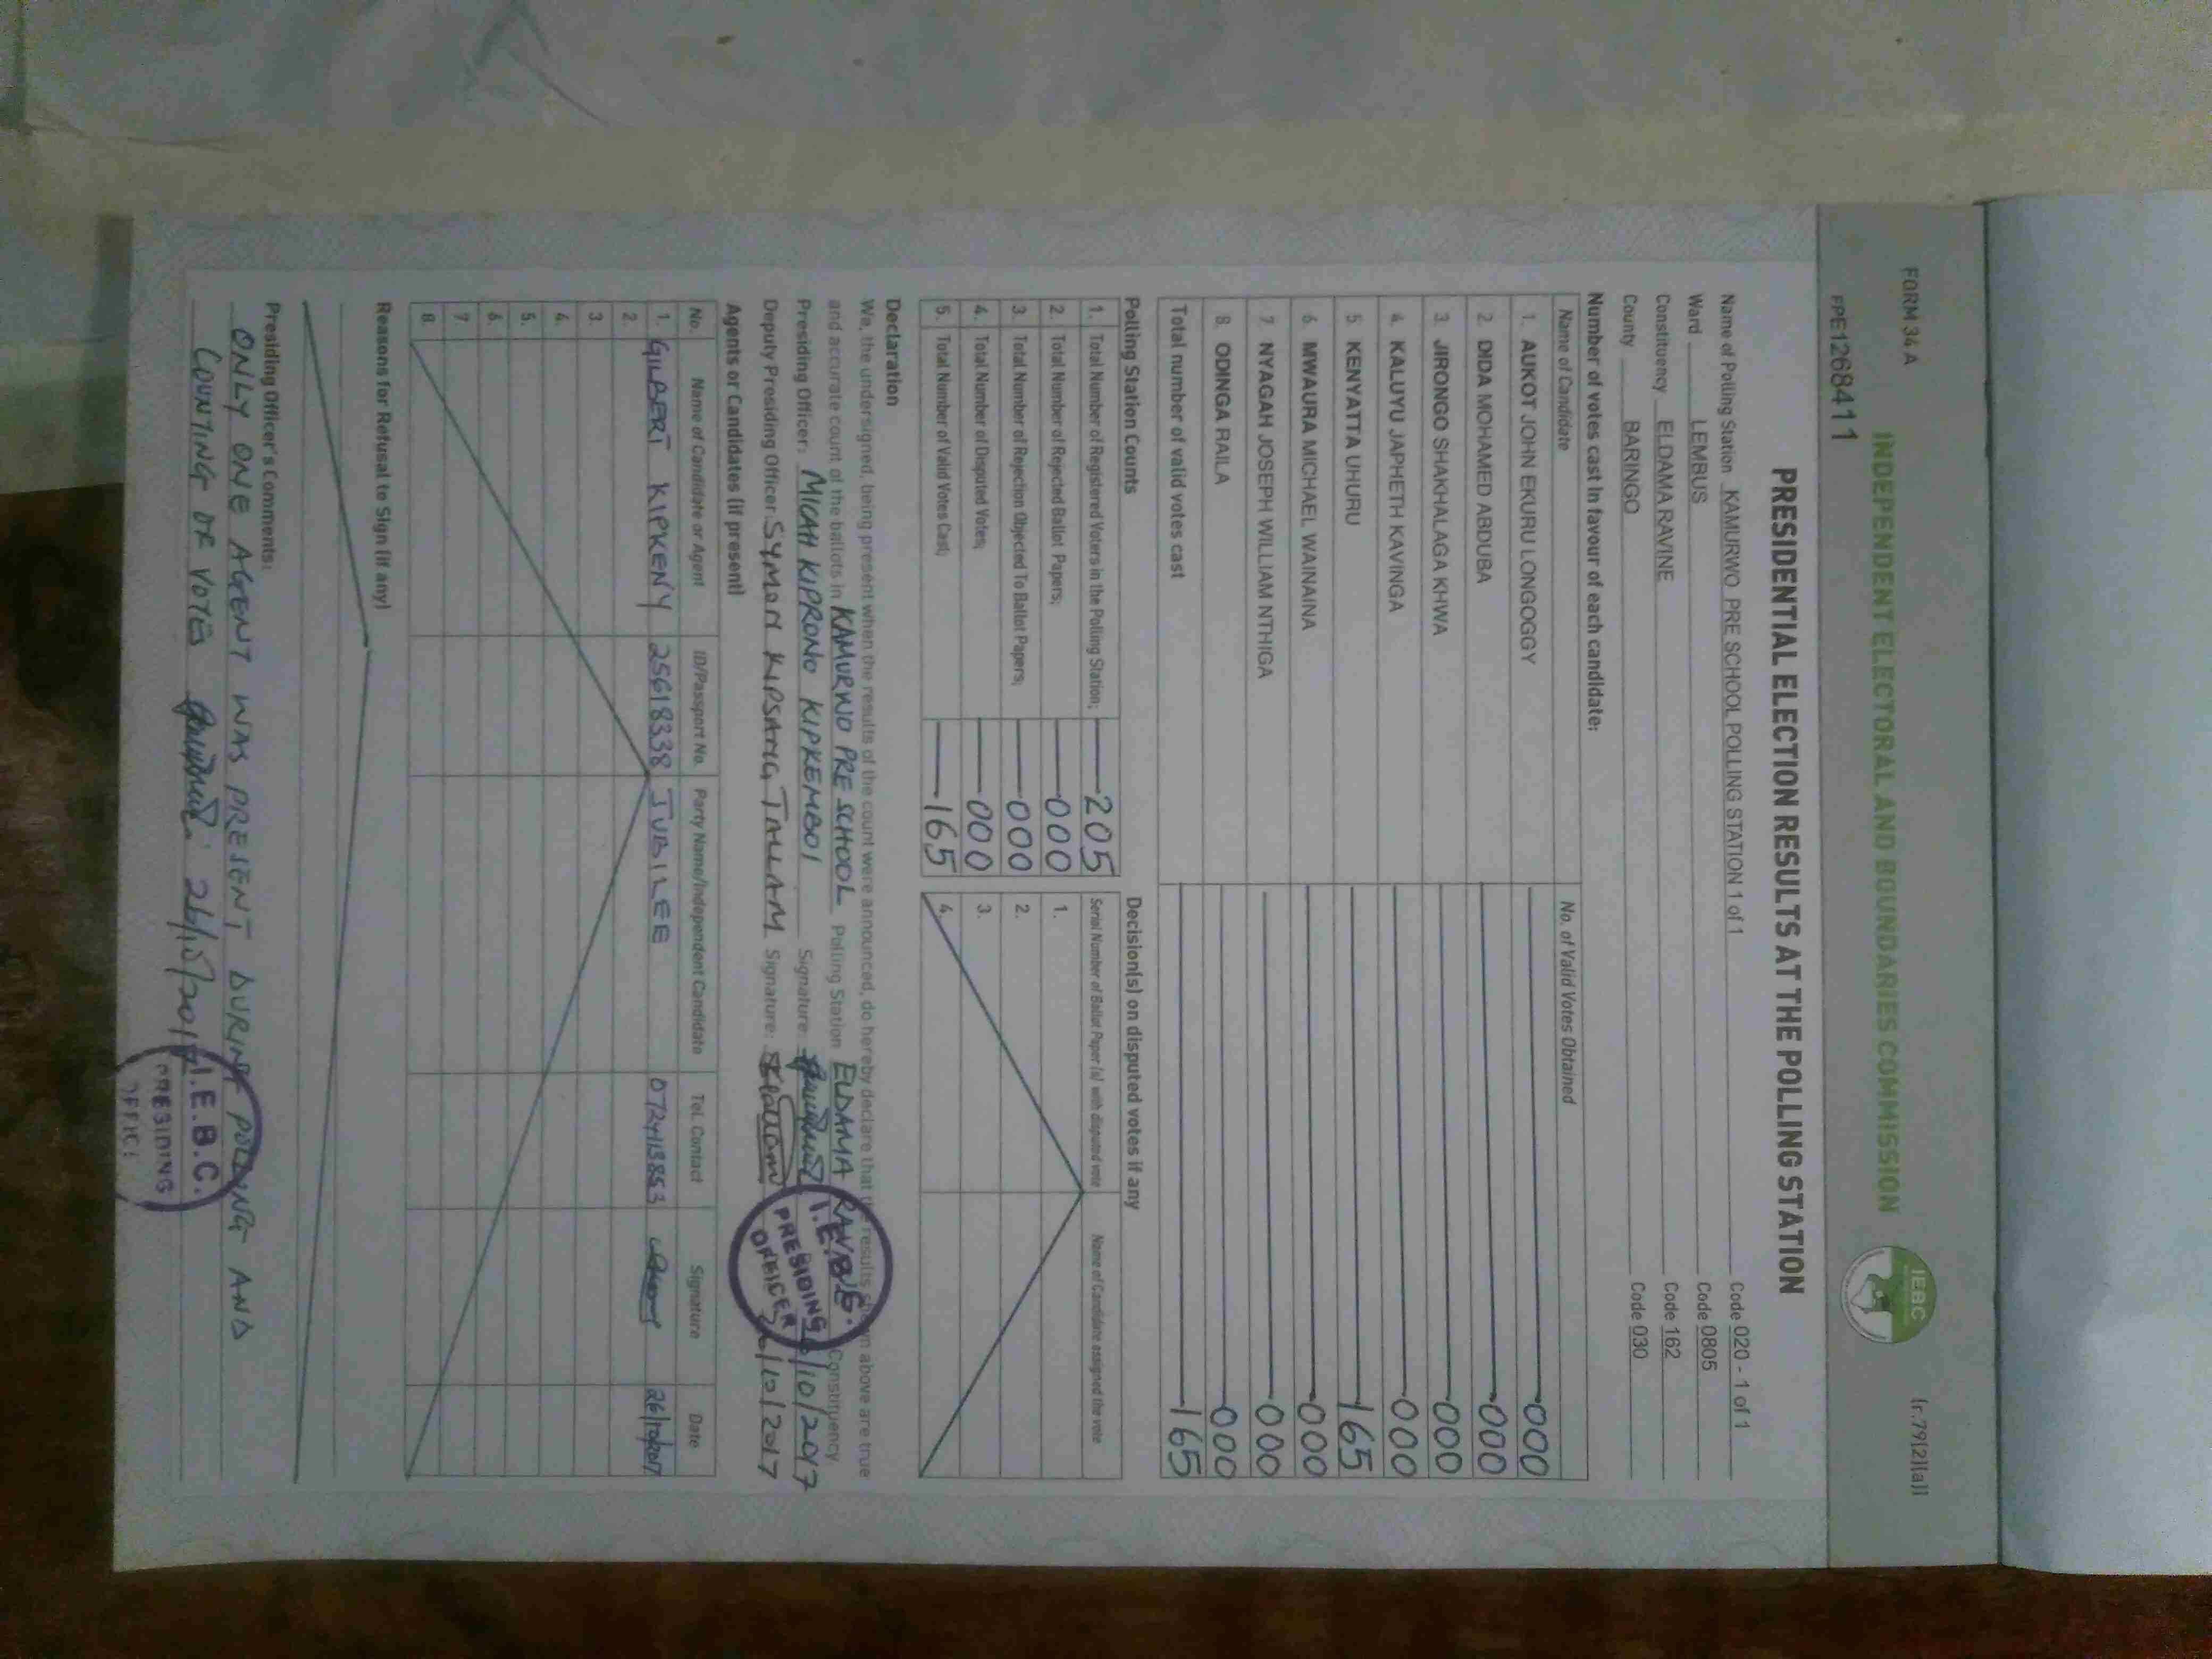 FORM 34 A
(r.79(2)(a))
INDEPENDENT ELECTORAL AND BOUNDARIES COMMISSION
IEBC
FPE1268411
PRESIDENTIAL ELECTION RESULTS AT THE POLLING STATION
Name of Polling Station KAMURWO PRE SCHOOL POLLING STATION 1 of 1 Code 020 - 1 of 1
Ward LEMBUS Code 0805
Constituency ELDAMA RAVINE Code 162
County BARINGO Code 030
Number of votes cast in favour of each candidate:
Name of Candidate No. of Valid Votes Obtained
1. AUKOT JOHN EKURU LONGOGGY 000
2. DIDA MOHAMED ABDUBA 000
3. JIRONGO SHAKHALAGA KHWA 000
4. KALUYU JAPHETH KAVINGA 000
5. KENYATTA UHURU 165
6. MWAURA MICHAEL WAINAINA 000
7. NYAGAH JOSEPH WILLIAM NTHIGA 000
8. ODINGA RAILA 000
Total number of valid votes cast 165
Polling Station Counts
1. Total Number of Registered Voters in the Polling Station; 205
2. Total Number of Rejected Ballot Papers; 000
3. Total Number of Rejection Objected To Ballot Papers; 000
4. Total Number of Disputed Votes; 000
5. Total Number of Valid Votes Cast; 165
Decision(s) on disputed votes if any
Serial Number of Ballot Paper (s) with disputed vote Name of Candidate assigned the vote
1.
2.
3.
4.
Declaration
We, the undersigned, being present when the results of the count were announced, do hereby declare that the results shown above are true
and accurate count of the ballots in KAMURWO PRE SCHOOL Polling Station ELDAMA RAVINE Constituency
Presiding Officer: MICAH KIPRONO KIPKEMBOI Signature: 26/10/2017
Deputy Presiding Officer: SYMON KIPSANG TALLAM Signature: 26/10/2017
I.E.B.C.
PRESIDING
OFFICER
Agents or Candidates (if present)
No. Name of Candidate or Agent ID/Passport No. Party Name/Independent Candidate Tel. Contact Signature Date
1. GILBERT KIPKENY 25618338 JUBILEE 0724113853 26/10/2017
2.
3.
4.
5.
6.
7.
8.
Reasons for Refusal to Sign (if any)
Presiding Officer's Comments:
ONLY ONE AGENT WAS PRESENT DURING POLLING AND
COUNTING OF VOTES 26/10/2017
I.E.B.C.
PRESIDING